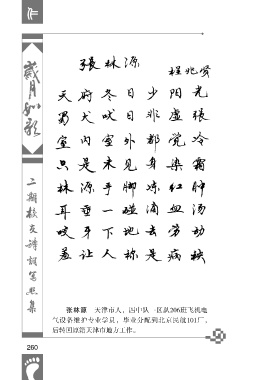 作
岁月如歌
二期校友诗词书画集
張林源
程兆贤
天府冬日少阳光
蜀犬吠日非虚张
室内室外都觉冷
只是未见身染霜
林源手脚冻红肿
耳垂一碰滴血汤
咬牙下地去劳动
羞让人称是病秧
张林源 天津市人，四中队一区队206班飞机电
气设备维护专业学员，毕业分配到北京民航101厂，
后转回原籍天津市地方工作。
260